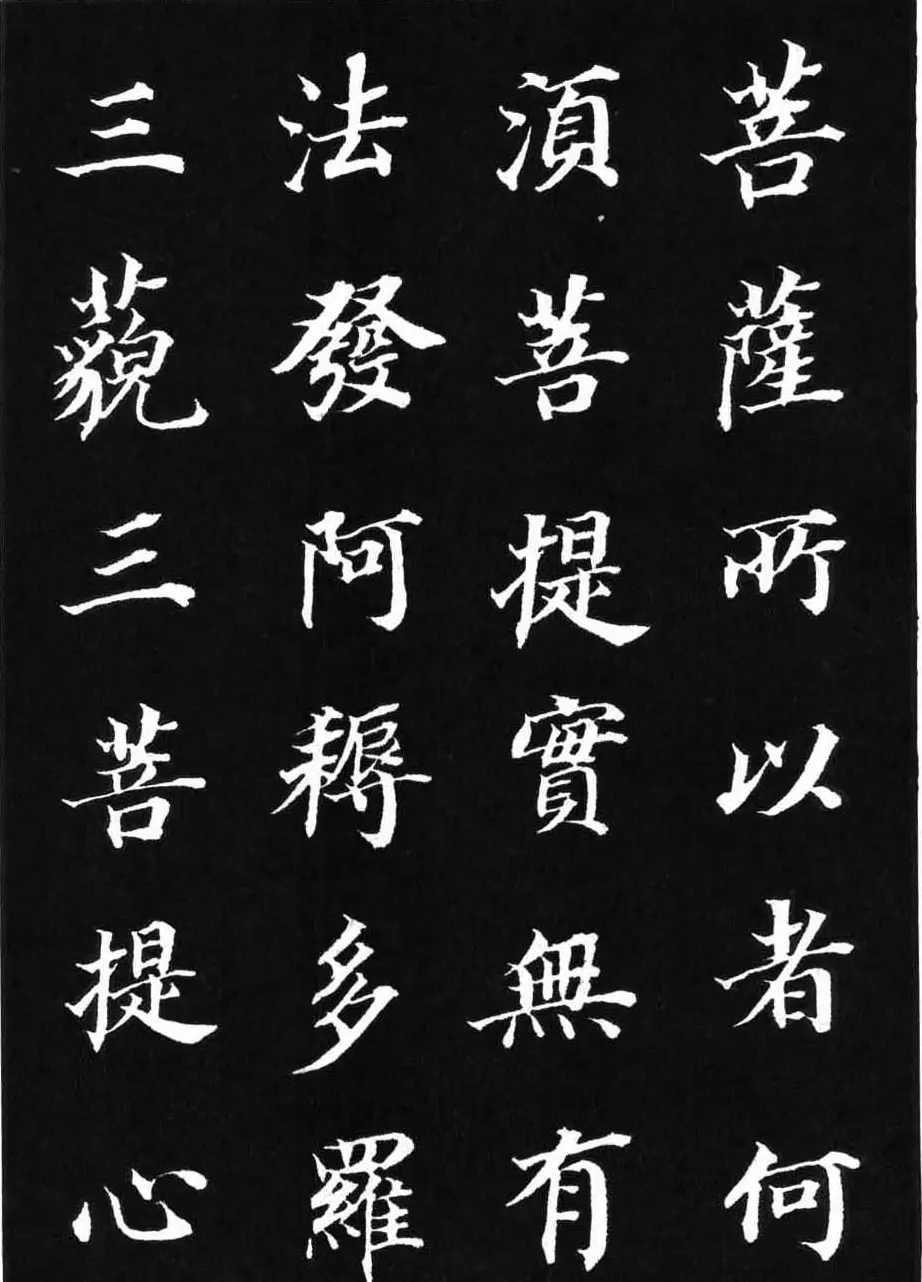 菩薩所以者何
湏菩提實無有
法發阿耨多羅
三藐三菩提心